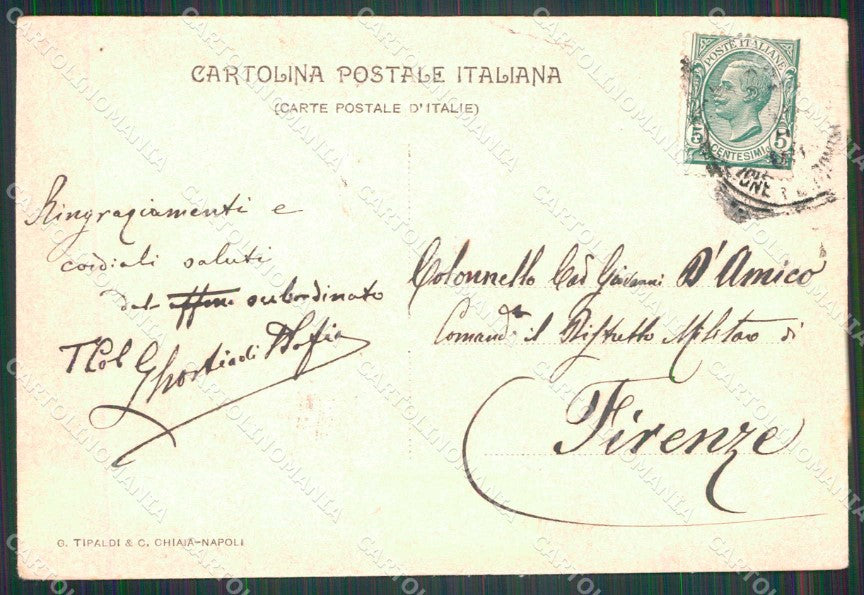 CARTOLINA POSTALE ITALIANA
(CARTE POSTALE D'ITALIE)
POSTE ITALIANE
5 5
CENTESIMI
Ringraziamenti e
cordiali saluti
dal affmo subordinato
T Col
Colonnello Cav Giovanni D'Amico
Comandte il Distretto Militare di
Firenze
G. TIPALDI & C. CHIAIA-NAPOLI
CARTOLINOMANIA